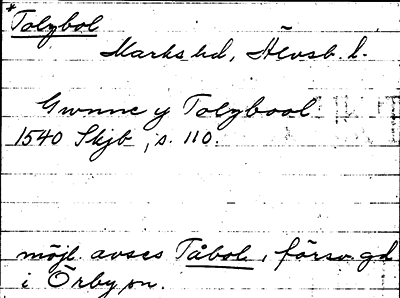 *Tolgbol
Marks hd, Älvsb. l.
Gwnne y Tolgbool
1540 Skjb, s. 110.
möjl. avses Tåbol, försv. gd
i Örby sn.